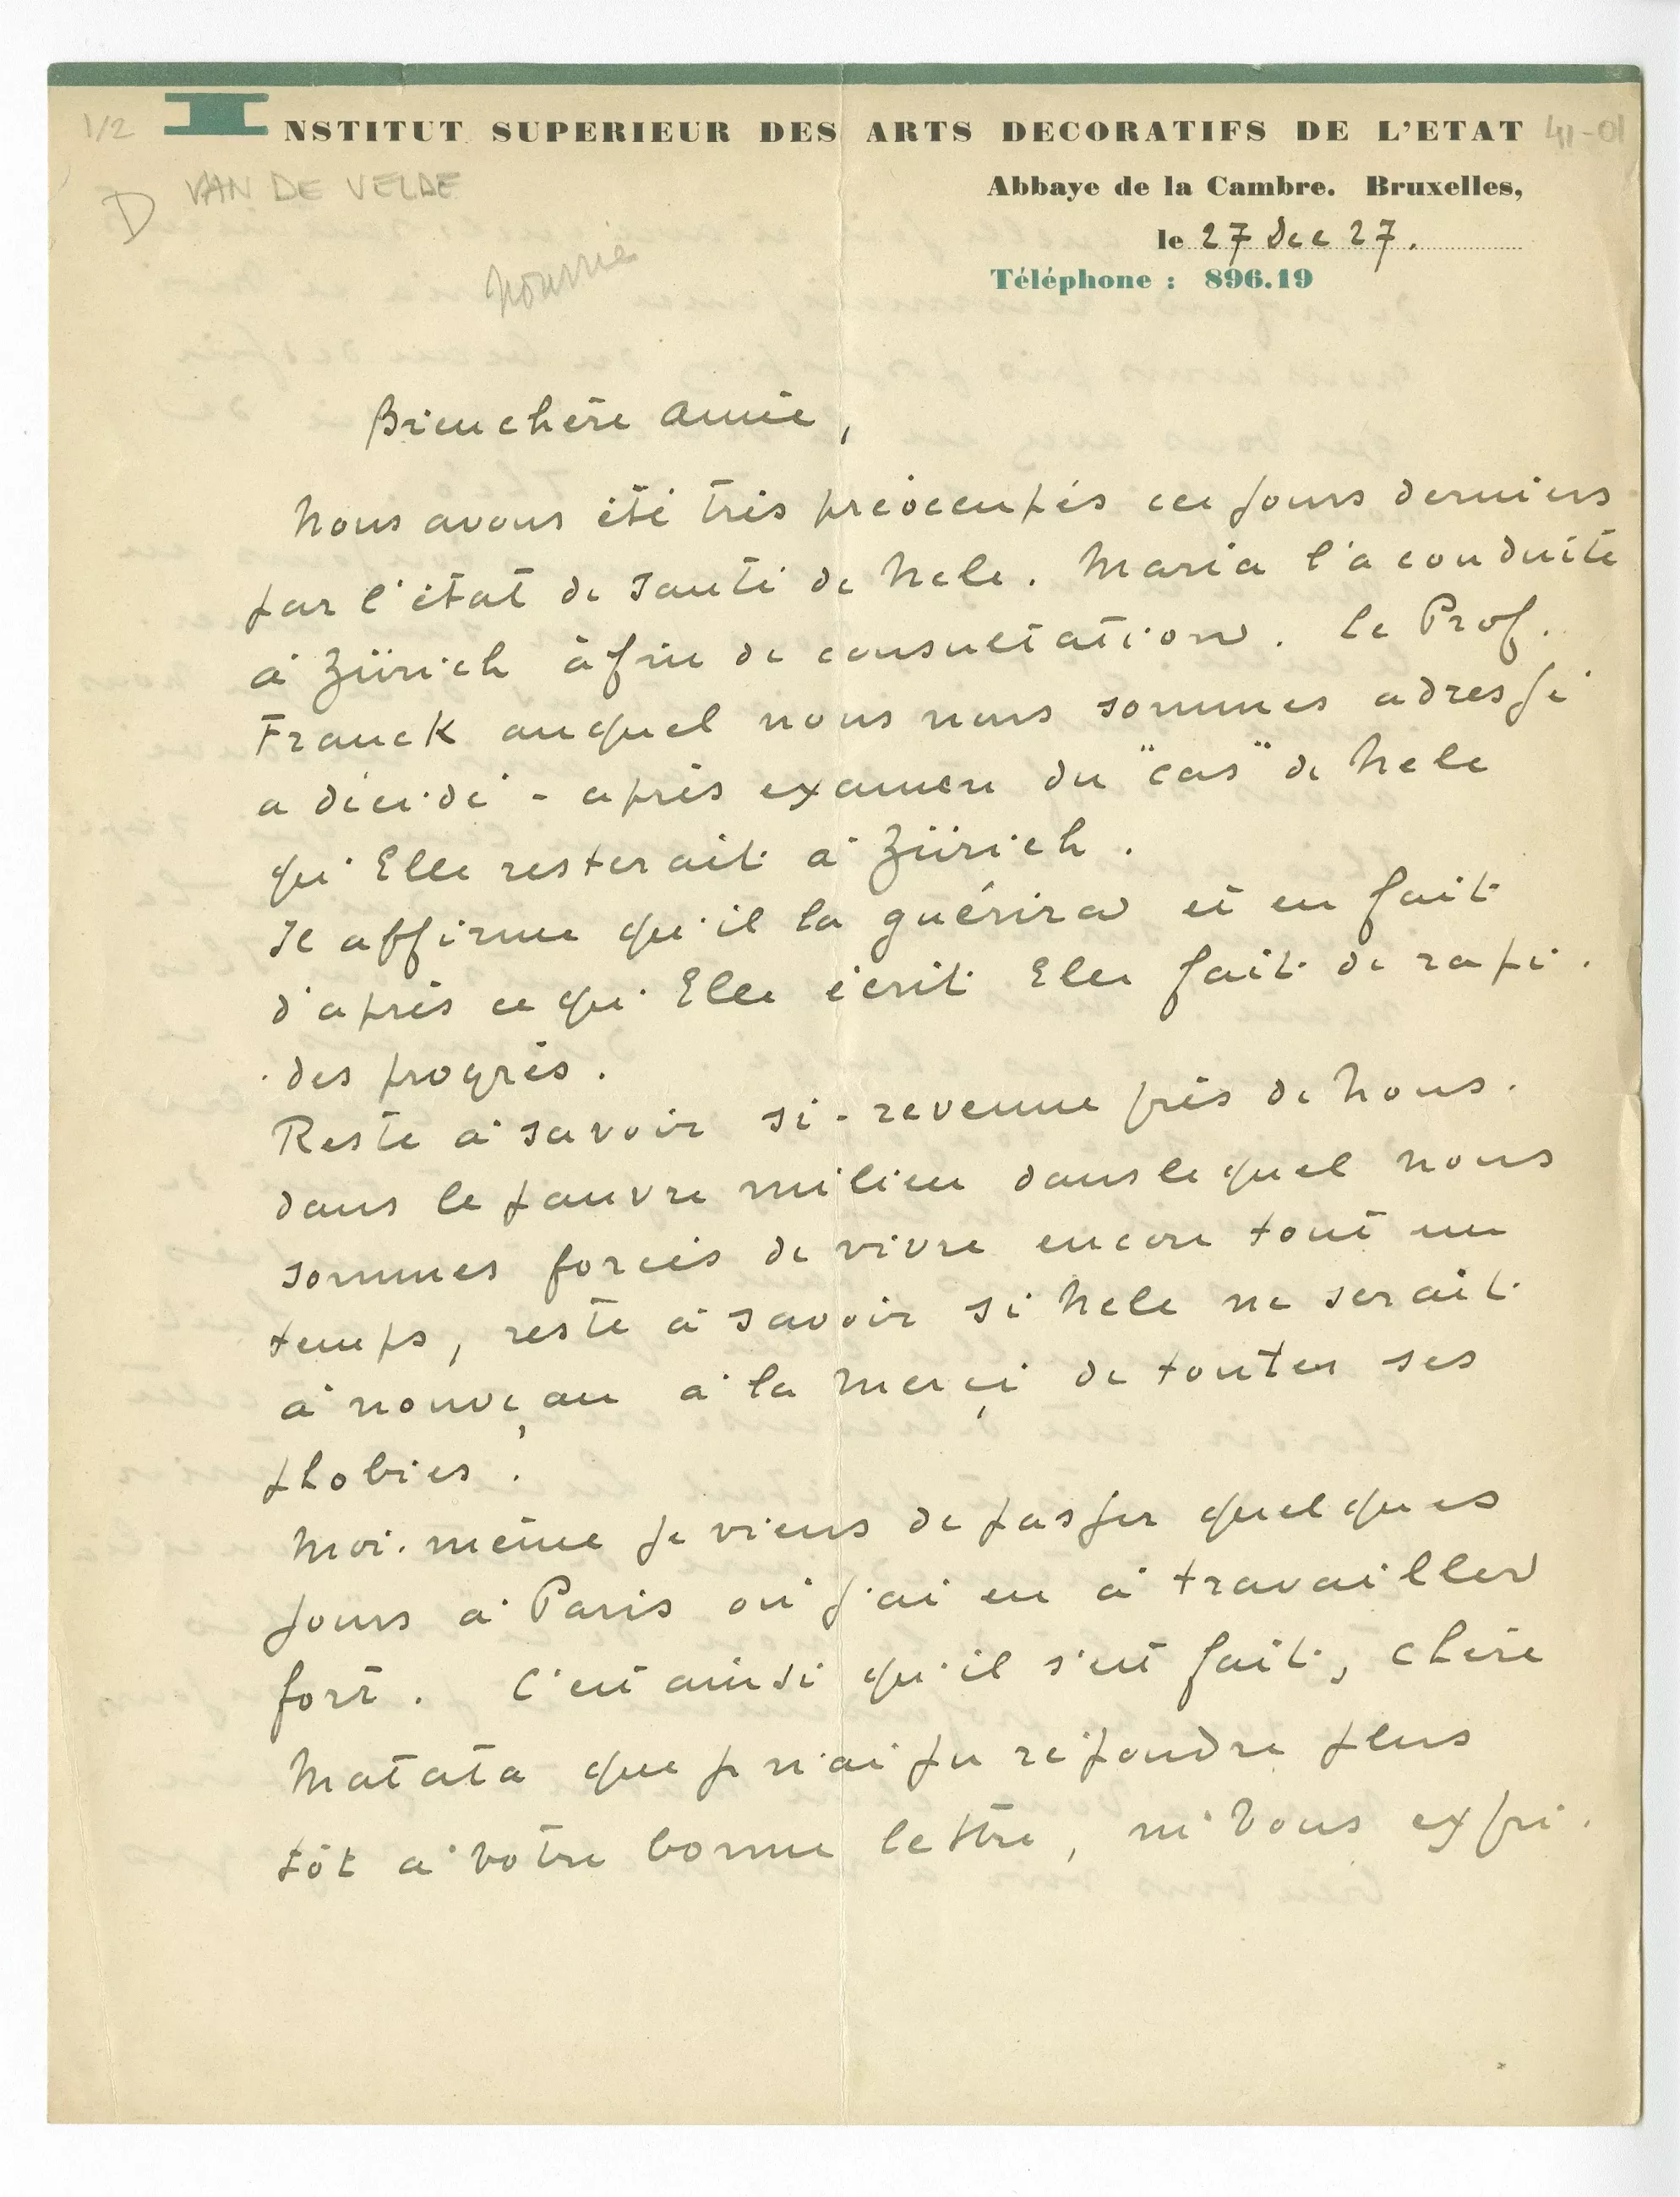 1/2
INSTITUT SUPERIEUR DES ARTS DECORATIFS DE L'ETAT
41-01
D VAN DE VELDE
Abbaye de la Cambre. Bruxelles,
le 27 Dec 27.
Téléphone : 896.19
Bien chère amie,
Nous avons été très préoccupés ces jours derniers
par l'état de santé de Nele. Maria l'a conduite
à Zürich à fin de consultation. Le Prof.
Franck auquel nous nous sommes adressé
a décidé - après examen du "cas" de Nele
qu'Elle resterait à Zürich.
Il affirme qu'il la guérira et en fait
d'après ce qu'Elle écrit Elle fait de rapi-
-des progrès.
Reste à savoir si - revenue près de nous -
dans le pauvre milieu dans lequel nous
sommes forcés de vivre encore tout un
temps, reste à savoir si Nele ne serait
à nouveau à la merci de toutes ses
phobies.
Moi-même je viens de passer quelques
jours à Paris où j'ai eu à travailler
fort. C'est ainsi qu'il s'est fait, chère
Matata que je n'ai pu répondre plus
tôt à votre bonne lettre, ni vous expri-